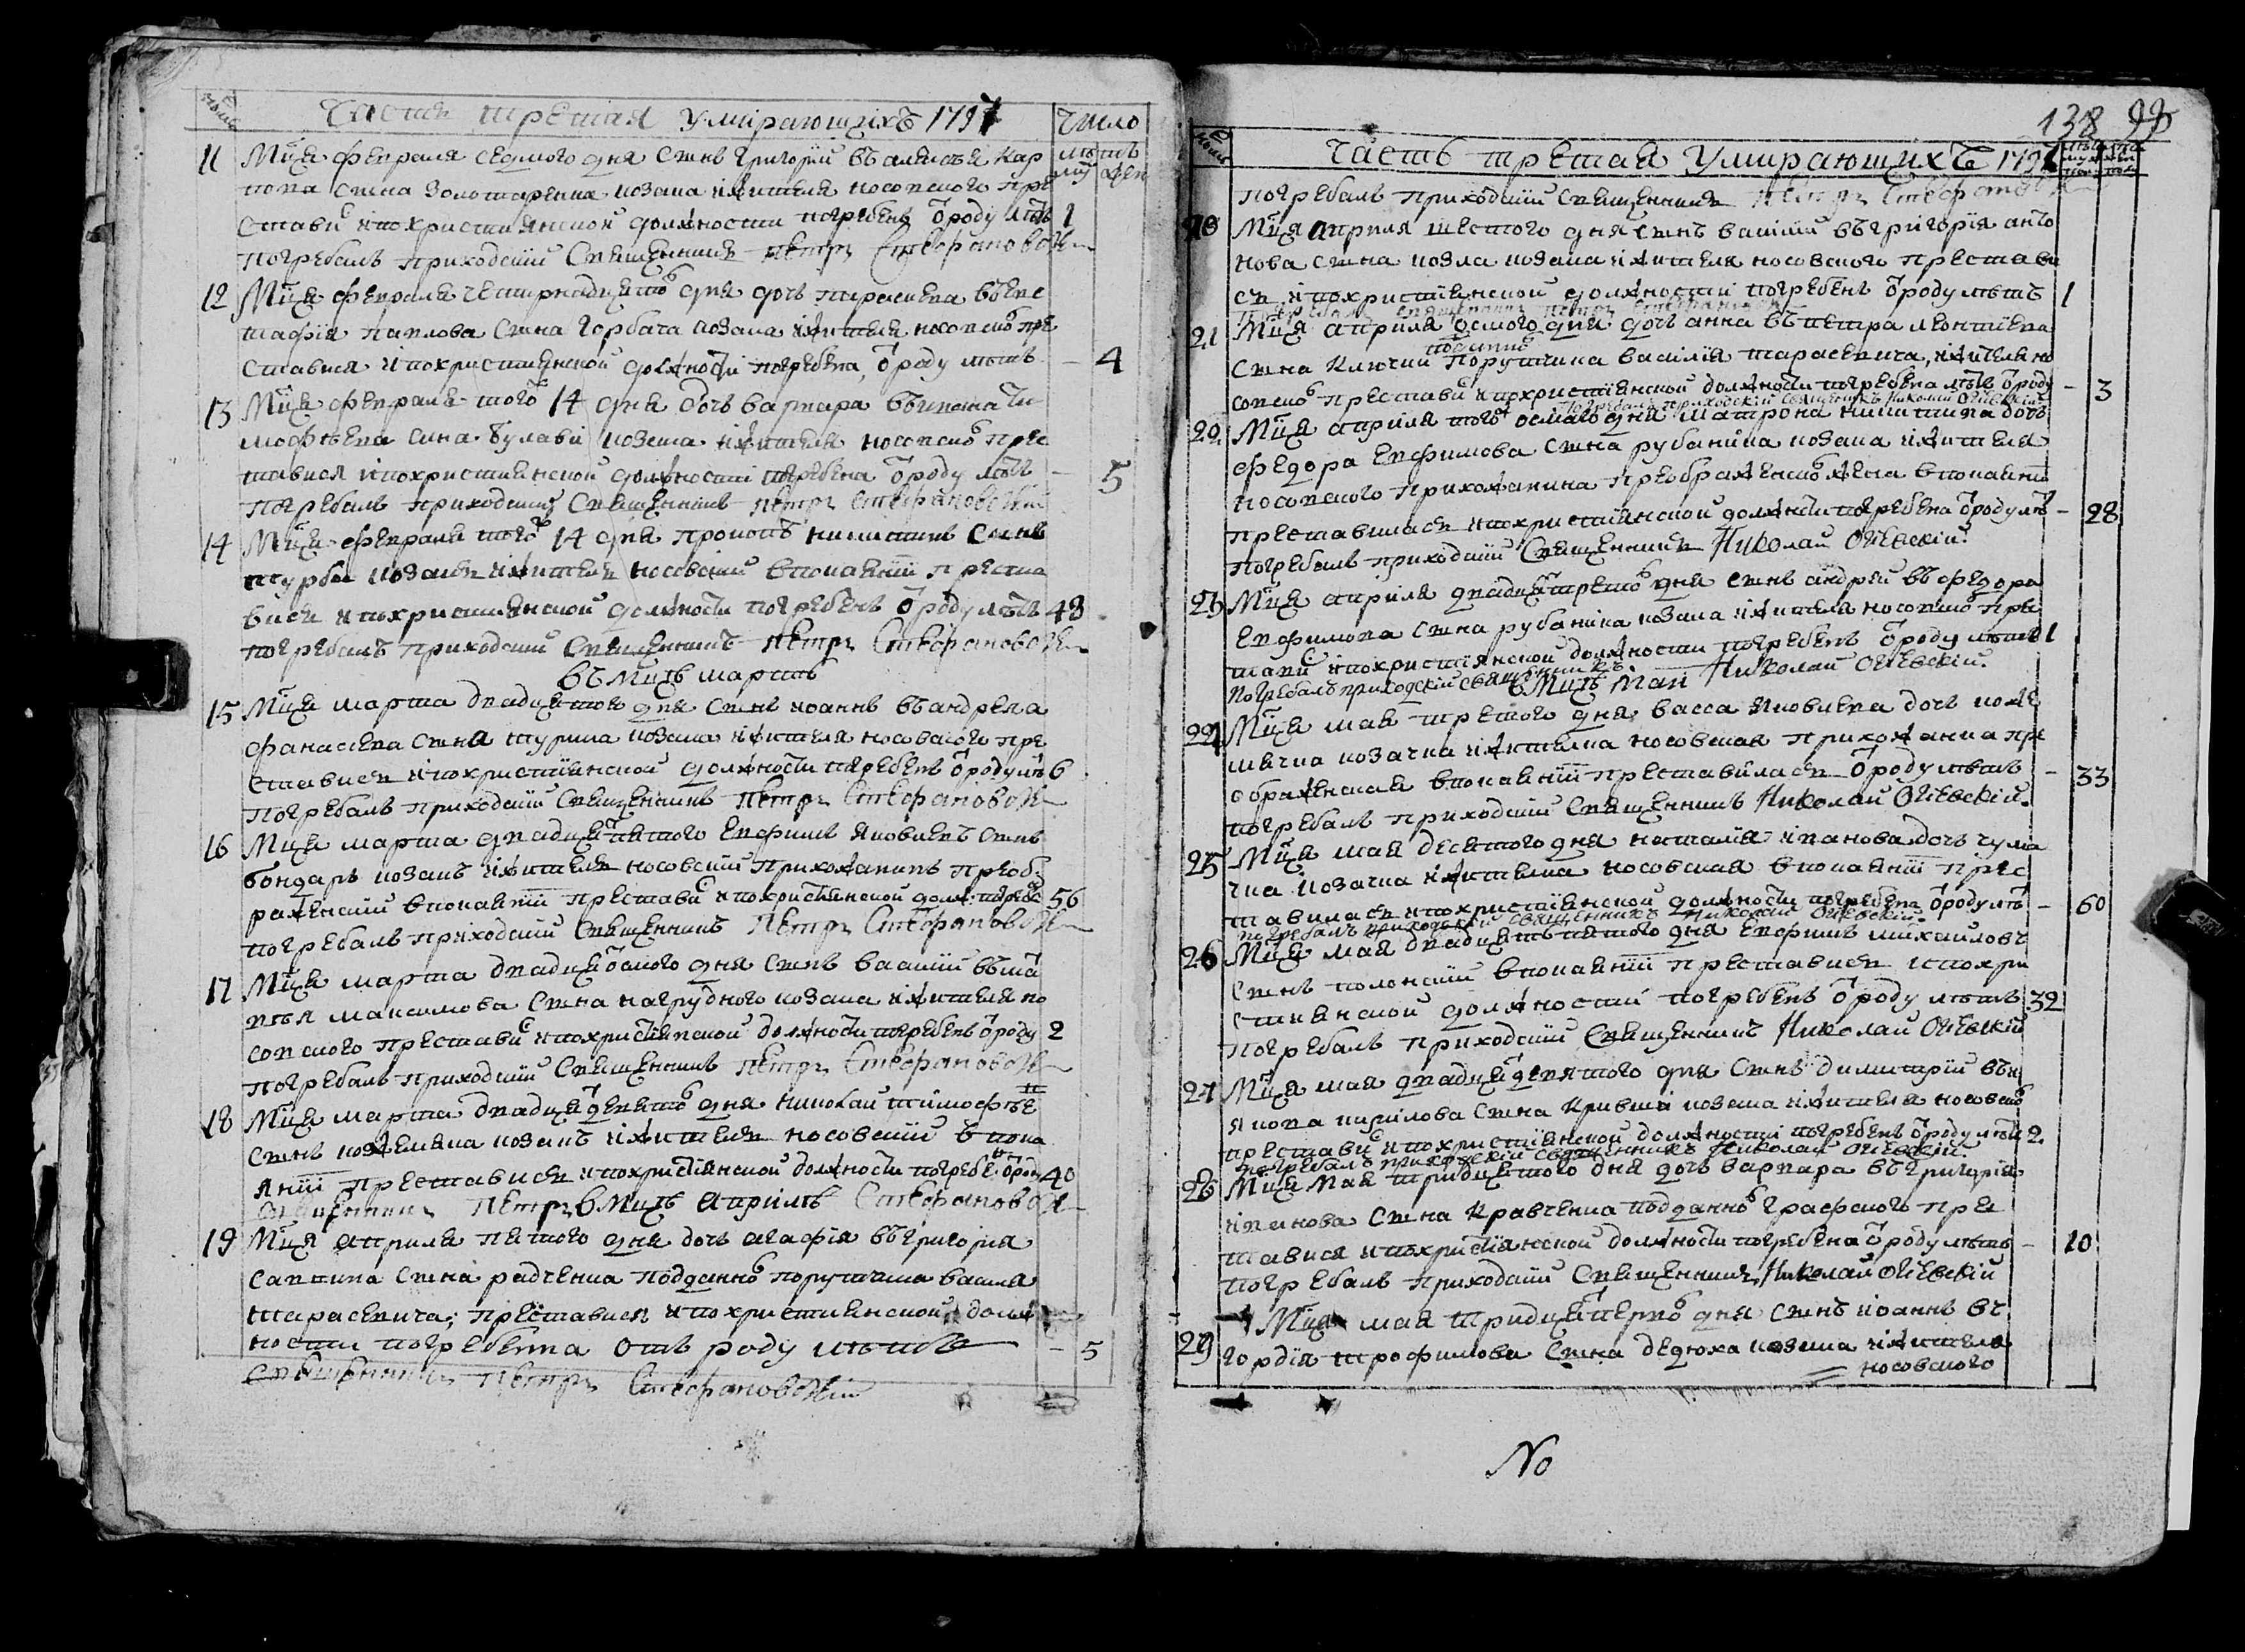 Часть третая Умирающихъ 1791 Число
11 Мца февраля седмого дня Сынъ Григорий въ алексѣя кар
пова сына Золотаренка козака жителя носовского пре
ставис и похристиянской должности погребенъ ѿроду лѣтъ 1
погребалъ приходский Священникъ Петръ Стефановский
12 Мца февраля четирнадцатого дня дочъ параскева въ евс
тафия павлова Сына Горбача козака жителя носовского пре
ставися и похристиянской должности погребена, ѿроду лѣтъ – 4
13 Мца февраля того 14 дня дочъ варвара въ игната ти
мофѣева сина булави козака жителя носовского прес
тавися и похристиянской должности погребена ѿроду лѣтъ – 5
погребалъ приходский Священникъ Петръ Стефановский
14 Мца февраля того 14 дня прокопъ никитинъ Сынъ
турбаи козакъ житель носовский в покаянии преста
вися и похристиянской должности погребенъ ѿроду лѣтъ 48
погребалъ приходский Священникъ Петръ Стефановский
въ Мцъ мартъ
15 Мца марта двадцатого дня Сынъ иоаннъ въ андрея а
фанасиева Сына козака жителя носовского пре
ставися и похристиянской должности погребенъ ѿроду лѣ 6
погребалъ приходский Священникъ Петръ Стефановский
16 Мца марта двадцать пятого евфимъ яковлевъ Сынъ
бондаръ козакъ житель носовский прихожанинъ преоб
раженский в покаянии преставис и похристиянской долж: погребе 56
погребалъ приходский Священникъ Петръ Стефановский
17 Мца марта двадцать осмого дня Сынъ василий въ мат
вѣя максимова Сына нагрудного козака жителя но
совского преставис и похристиянской должности погребенъ ѿроду 2
погребалъ приходский Священникъ Петръ Стефановский
18 Мца марта двадцать девятого дня николай тимофѣе
Сынъ кожемяка козакъ житель носовский в пока
янии преставися и похристиянской должности погребе: ѿроду 40
Священникъ Петръ в Мцъ априлъ Стефановский
19 Мца априля пятого дня дочъ агафия въ григория
савкина Сына радченка подданного поручика василия
тарасевича; преставися и похристиянской долж
ности погребенна отъ роду лѣтъ – 5
Священникъ Петръ Стефановский
138 99
Часть третая Умирающихъ 1791
погребалъ приходский Священникъ Петръ Стефановский
20 Мця априля шестого дня Сынъ василий въ григория анто
нова Сына козла козака жителя носовского престави
ся и похристиянской должности погребенъ ѿроду лѣтъ 1
погребалъ священникъ Петръ Стефановский
21 Мця априля осмого дня дочъ анна въ петра леонтиева
подданного
Сына поручика василия тарасевича, жителя но
совского преставис и похристиянской должности погребена лѣтъ ѿроду – 3
погребалъ приходский священникъ Николай Огиевский
20. Мця априля того осмаго дня матрона никитина дочъ
федора евфимова Сына рубанина козака жителя
носовского прихожанина преображенского жена в покаянии
преставилася и похристиянской должности погребена ѿроду лѣ – 28
погребалъ приходский Священникъ Николай Огиевский.
23 Мця априля двадцать третого дня Сынъ андрей въ федора
евфимова Сына рубанина козака жителя носовского пре
ставис и похристиянской должности погребенъ ѿроду лѣтъ 1
погребалъ приходский священникъ. Николай Огиевский.
в Мцъ май
24 Мця мая третого дня васса яковлева дочъ коже
мячка козачка жителка носовская прихожанка пре
ображенская в покаянии преставилася ѿроду лѣтъ – 33
погребалъ приходский Священникъ Николай Огиевский.
25 Мця мая десятого дня наталия иванова дочъ чума
чка козачка жителка носовская в покаянии прес
тавилася и похристиянской должности погребена ѿроду лѣ – 60
погребалъ приходский священникъ Николай Огиевский.
26 Мця мая двадцять пятого дня евфимъ михайловъ
Сынъ полонский в покаянии преставися и похри
стиянской должности погребенъ ѿроду лѣтъ 32
погребалъ приходский Священникъ Николай Огиевский
27 Мця мая двадцать девятого дня Сынъ димитрий въ и
якова кирилова Сына козака жителя носовского
преставис и похристиянской должности погребенъ ѿроду лѣтъ 2.
погребалъ приходский священникъ Николай Огиевский.
28 Мця мая тридцятого дня дочъ варвара въ григория
иванова Сына кравченка подданного графского пре
ставися и похристиянской должности погребена ѿроду лѣтъ – 10
погребалъ приходский Священникъ Николай Огиевский
29 Мця мая тридцать первого дня Сынъ иоаннъ въ
гордия трофимова Сына дедюха козака жителя
носовского
No